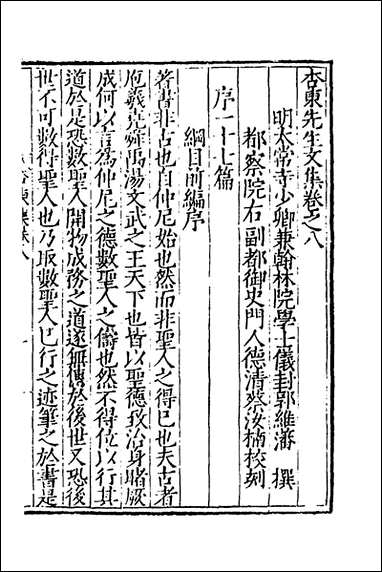 杏東先生文集卷之八
明太常寺少卿兼翰林院學士儀封郭維藩 撰
都察院右副都御史門人德清蔡汝楠校刻
序一十七篇
綱目前編序
著書非古也自仲尼始也然而非聖人之得已也夫古者
庖羲堯舜禹湯文武之王天下也皆以聖德致治身睹厥
成何以言為仲尼之德數聖人之儔也然不得位以行其
道於是恐數聖人開物成務之道遂無傳於後世又恐後
世不可數得聖人也乃取數聖人已行之迹筆之於書是